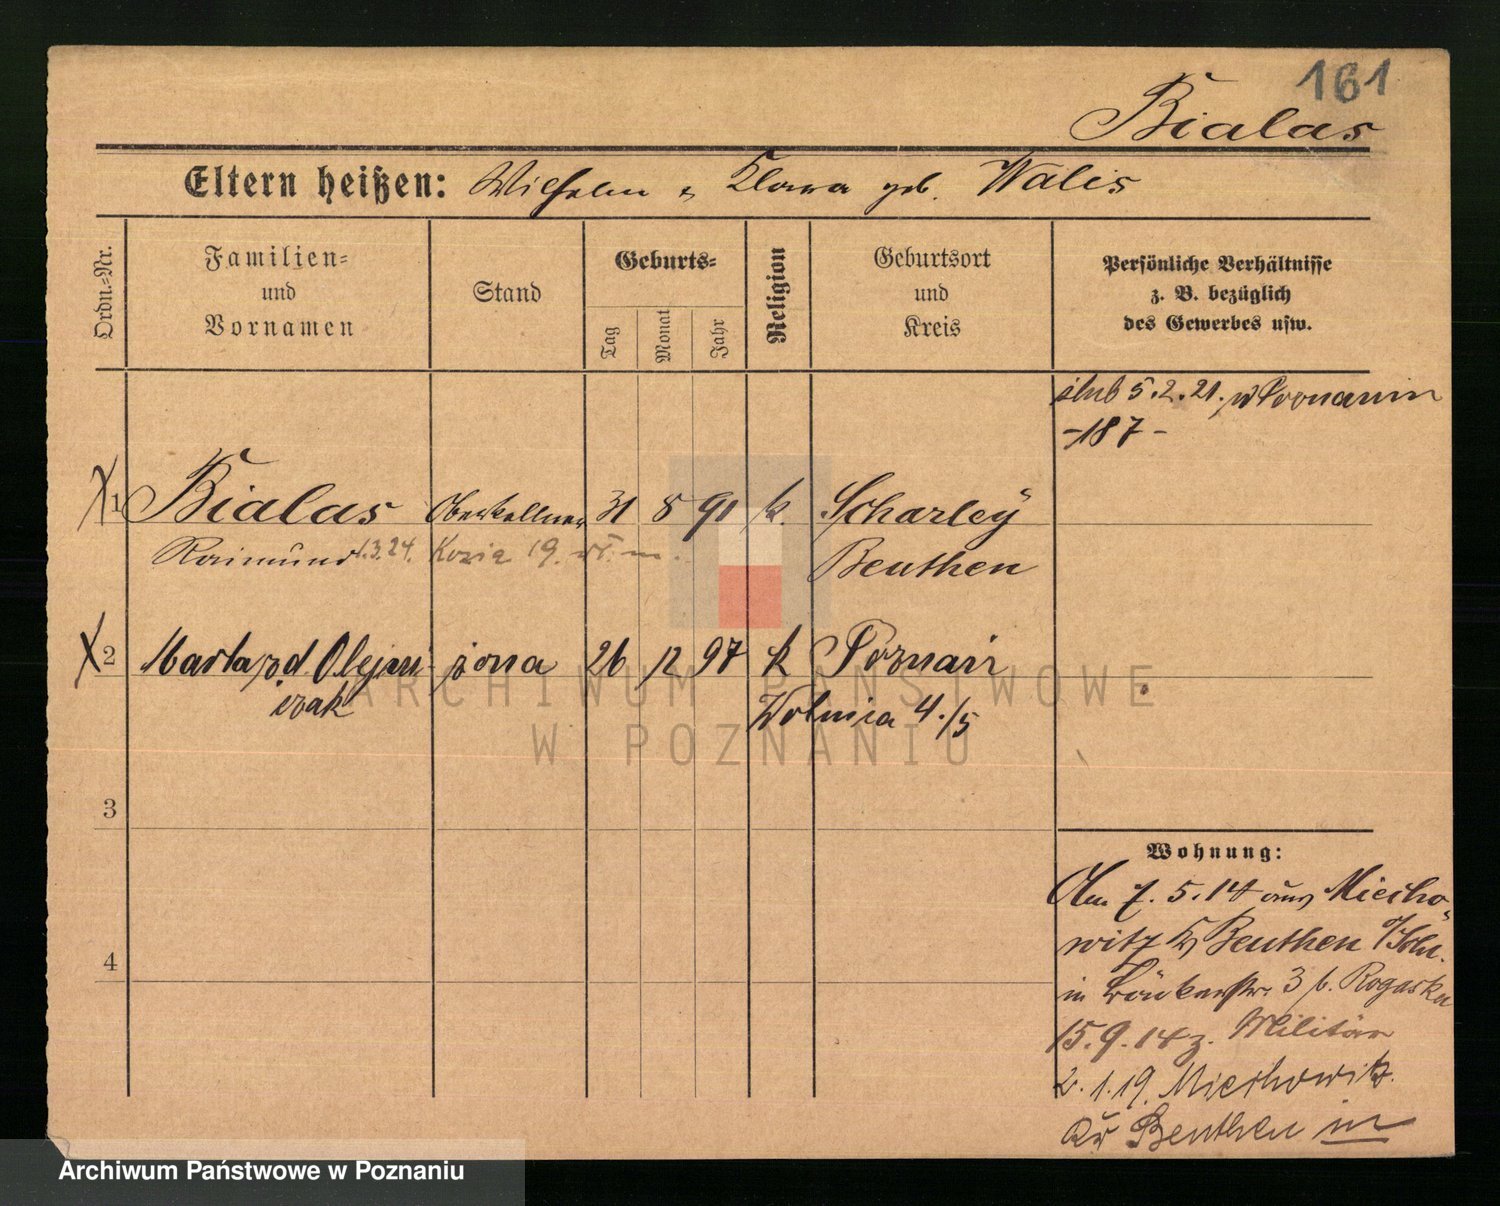 161
Bialas
Eltern heißen: Wilhelm u Klara geb. Walis
Ordn.=Nr.
Familien=
und
Vornamen
Stand
Geburts=
Tag
Monat
Jahr
Religion
Geburtsort
und
Kreis
Persönliche Verhältnisse
z. B. bezüglich
des Gewerbes usw.
ślub 5.2.21. w Poznaniu
-187-
1 Bialas Oberkellner 31 8 91 k. Scharley
Raimund 1.3.24. Kozia 19. Beuthen
2 Marta zd. Olejni- żona 26 12 97 k Poznań
czak Wolnica 4./5
3
4
Wohnung:
Am 7.5.14 aus Miecho-
witz Kr Beuthen
in 3 b. Rogaska
15.9.14 z. Militär
2.1.19. Miechowitz
Kr Beuthen
ARCHIWUM PAŃSTWOWE
W POZNANIU
Archiwum Państwowe w Poznaniu